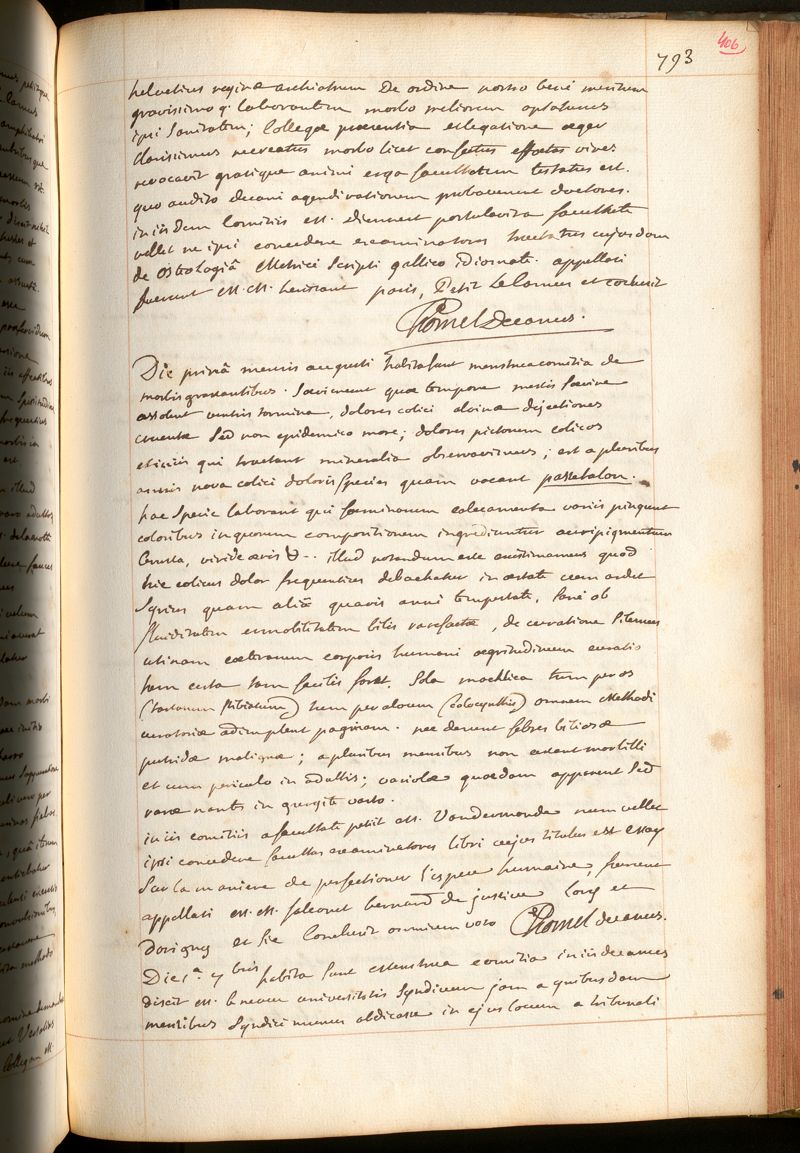 406
793
helvetius reginæ archiatrum De ordine nostro bene meritum
gravissimo q. laborantem morbo meliorem optatemus
ipsi Sanitatem; Collegæ præsentia et legatione æger
Clarissimus recreatus morbo licet confectus effœtas vires
revocavit gratique animi erga facultatem testatus est.
quo audito decani agendi rationem probaverunt doctores.
in iisdem Comitiis M. diennert postulavit a facultate
vellet ne ipsi concedere examinatores tractatus cujusdam
de Osteologiâ Metrici Scripti gallico idiomati. appellati
fuerunt M. M. herissant paris, Petit Le Camus et
Chomel Decanus.
Die primâ mensis augusti habita sunt menstrua comitia de
morbis grassantibus. Sævierunt quæ tempore messis Sævire
assolent ventris tormina, dolores colici alvinæ dejectiones
cruentæ Sed non epidemico more; dolores pictorum colicos
et in iis qui tractant mineralia observavimus; est a pluribus
annis nova colici doloris Species quam vocant
hac Specie laborant qui foeminarum calecamenta variis pingunt
coloribus in quorum compositionem ingrediuntur auripigmentum
Cerussa, viride æris &.. illud notandum esse existimamus quod
hic colicus dolor frequentius debachatur in æstate cum ardet
Syrius quam aliâ quavis anni tempestate, Sane ob
fluiditatem et mobilitatem bilis rarefactæ, de curatione Silemus
utinam cæterarum corporis humani ægritudinum curatio
tam certa tam facilis foret. Sola mochlica tum per os
(tartarum Stibiatum) tum per alvum (colocynthis) omnem Methodi
curatoriæ adimplent paginam. nec desunt febres biliosæ
putridæ malignæ; a pluribus mensibus non cessant morbilli
et cum periculo in adultis; variolæ quædam apparent Sed
raræ nantes in gurgite vasto.
in iis comitiis a facultate petiit M. Vandermonde num vellet
ipsi concedere facultas examinatores libri cujus titulus est Essay
Sur la maniere de perfectionner l'espece humaine, fuerunt
appellati M. M. falconet bernard de jussieu Lorry et
Dorigny et sic Conclusit omnium voto Chomel decanus.
Die 1ª. 7 bris habita Sunt Menstrua comitia in iis decanus
dixit M. le universitatis Syndicum jam a quibusdam
mensibus Syndici munus abdicasse in ejus locum a tribunali